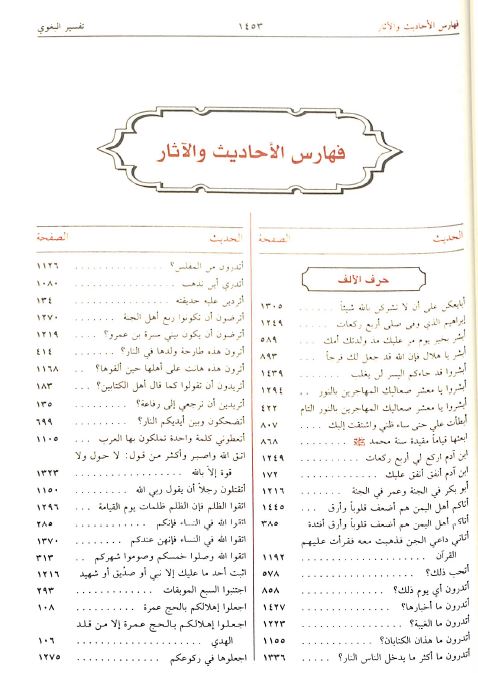 فهارس الأحاديث والآثار
١٤٥٣
تفسير البغوي
فهارس الأحاديث والآثار
الحديث الصفحة
حرف الألف
أبايعكن على أن لا تشركن بالله شيئاً ١٣٠٥
إبراهيم الذي وفى صلى أربع ركعات ١٢٤٩
أبشر بخير يوم مر عليك مذ ولدتك أمك ٥٨٩
أبشر يا هلال فإن الله قد جعل لك فرجاً ٨٩٣
أبشروا قد جاءكم اليسر لن يغلب ١٤٣٩
أبشروا يا معشر صعاليك المهاجرين بالنور ١٢٩٤
أبشروا يا معشر صعاليك المهاجرين بالنور التام ٤٢٢
أبطأت علي حتى ساء ظني واشتقت إليك ٨٠٧
ابعثها قياماً مقيدة سنة محمد ﷺ ٨٦٨
ابن آدم اركع لي أربع ركعات ١٢٤٩
ابن آدم أنفق أنفق عليك ١٧٢
أبو بكر في الجنة وعمر في الجنة ١٢١٦
أتاكم أهل اليمن هم أضعف قلوباً وأرق ١٤٤٥
أتاكم أهل اليمن هم أضعف قلوباً وأرق أفئدة ٣٨٥
أتاني داعي الجن فذهبت معه فقرأت عليهم
القرآن ١١٩٢
أتحب ذلك؟ ٥٧٨
أتدرون أي يوم ذلك؟ ٨٥٨
أتدرون ما أخبارها؟ ١٤٢٧
أتدرون ما الغيبة؟ ١٢٢٣
أتدرون ما هذان الكتابان؟ ١١٥٥
أتدرون ما أكثر ما يدخل الناس النار؟ ١٣٣٦
الحديث الصفحة
أتدرون من المفلس؟ ١١٢٦
أتدري أين تذهب ١٠٨٠
أتردين عليه حديقته ١٣٤
أترضون أن تكونوا ربع أهل الجنة ١٢٧٠
أترضون أن يكون بيني سترة بن عمرو؟ ١٢١٩
أترون هذه طارحة ولدها في النار؟ ٤١٤
أترون هذه هانت على أهلها حين ألقوها؟ ١١٦٨
أتريدون أن تقولوا كما قال أهل الكتابين؟ ١٨٣
أتريدين أن ترجعي إلى رفاعة؟ ١٣٥
أتضحكون وبين أيديكم النار؟ ٦٩٩
أتعطوني كلمة واحدة تملكون بها العرب ١١٠٥
اتق الله واصبر وأكثر من قول: لا حول ولا
قوة إلا بالله ١٣٢٣
أتقتلون رجلاً أن يقول ربي الله ١١٥٠
اتقوا الظلم فإن الظلم ظلمات يوم القيامة ١٢٩٦
اتقوا الله في النساء فإنكم ٢٨٥
اتقوا الله في النساء فإنهن عندكم ١٣٧٠
اتقوا الله وصلوا خمسكم وصوموا شهركم ٣١٣
اثبت أحد ما عليك إلا نبي أو صدّيق أو شهيد ١٢١٦
اجتنبوا السبع الموبقات ٢٩٣
اجعلوا إهلالكم بالحج عمرة ١٠٨
اجعلوا إهلالكم بالحج عمرة إلا من قلد
الهدي ١٠٦
اجعلوها في ركوعكم ١٢٧٥